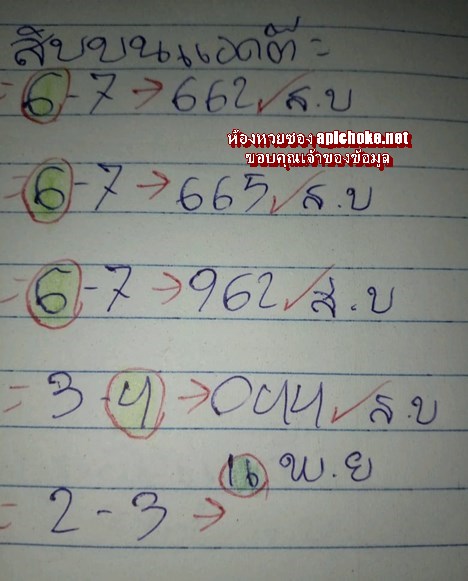 สิบบนแอดตี๋ =
= 6-7 → 662 ✓ ส.บ
ห้องหวยซอง apichoke.net
ขอบคุณเจ้าของข้อมูล
= 6-7 → 665 ✓ ส.บ
= 6-7 → 962 ✓ ส.บ
= 3-4 → 044 ✓ ส.บ
16 พ.ย
= 2-3 →